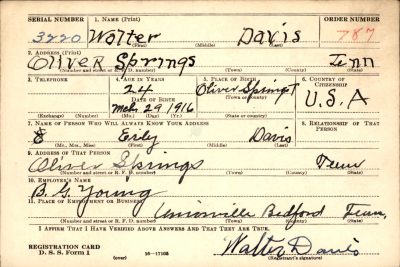 SERIAL NUMBER 1. NAME (Print) ORDER NUMBER
3220 Walter Davis 787
(First) (Middle) (Last)
2. ADDRESS (Print)
Oliver Springs Tenn
(Number and street or R. F. D. number) (Town) (County) (State)
3. TELEPHONE 4. AGE IN YEARS 5. PLACE OF BIRTH 6. COUNTRY OF CITIZENSHIP
24 Oliver Springs
DATE OF BIRTH (Town or county)
Mch. 29 1916 U.S.A
(Exchange) (Number) (Mo.) (Day) (Yr.) (State or country)
7. NAME OF PERSON WHO WILL ALWAYS KNOW YOUR ADDRESS 8. RELATIONSHIP OF THAT PERSON
Davis
(Mr., Mrs., Miss) (First) (Middle) (Last)
9. ADDRESS OF THAT PERSON
Oliver Springs Tenn
(Number and street or R. F. D. number) (Town) (County) (State)
10. EMPLOYER'S NAME
B. G. Young
11. PLACE OF EMPLOYMENT OR BUSINESS
Unionville Bedford Tenn,
(Number and street or R. F. D. number) (Town) (County) (State)
I AFFIRM THAT I HAVE VERIFIED ABOVE ANSWERS AND THAT THEY ARE TRUE.
REGISTRATION CARD
D. S. S. Form 1 (over) 16—17105 Walter Davis
(Registrant's signature)